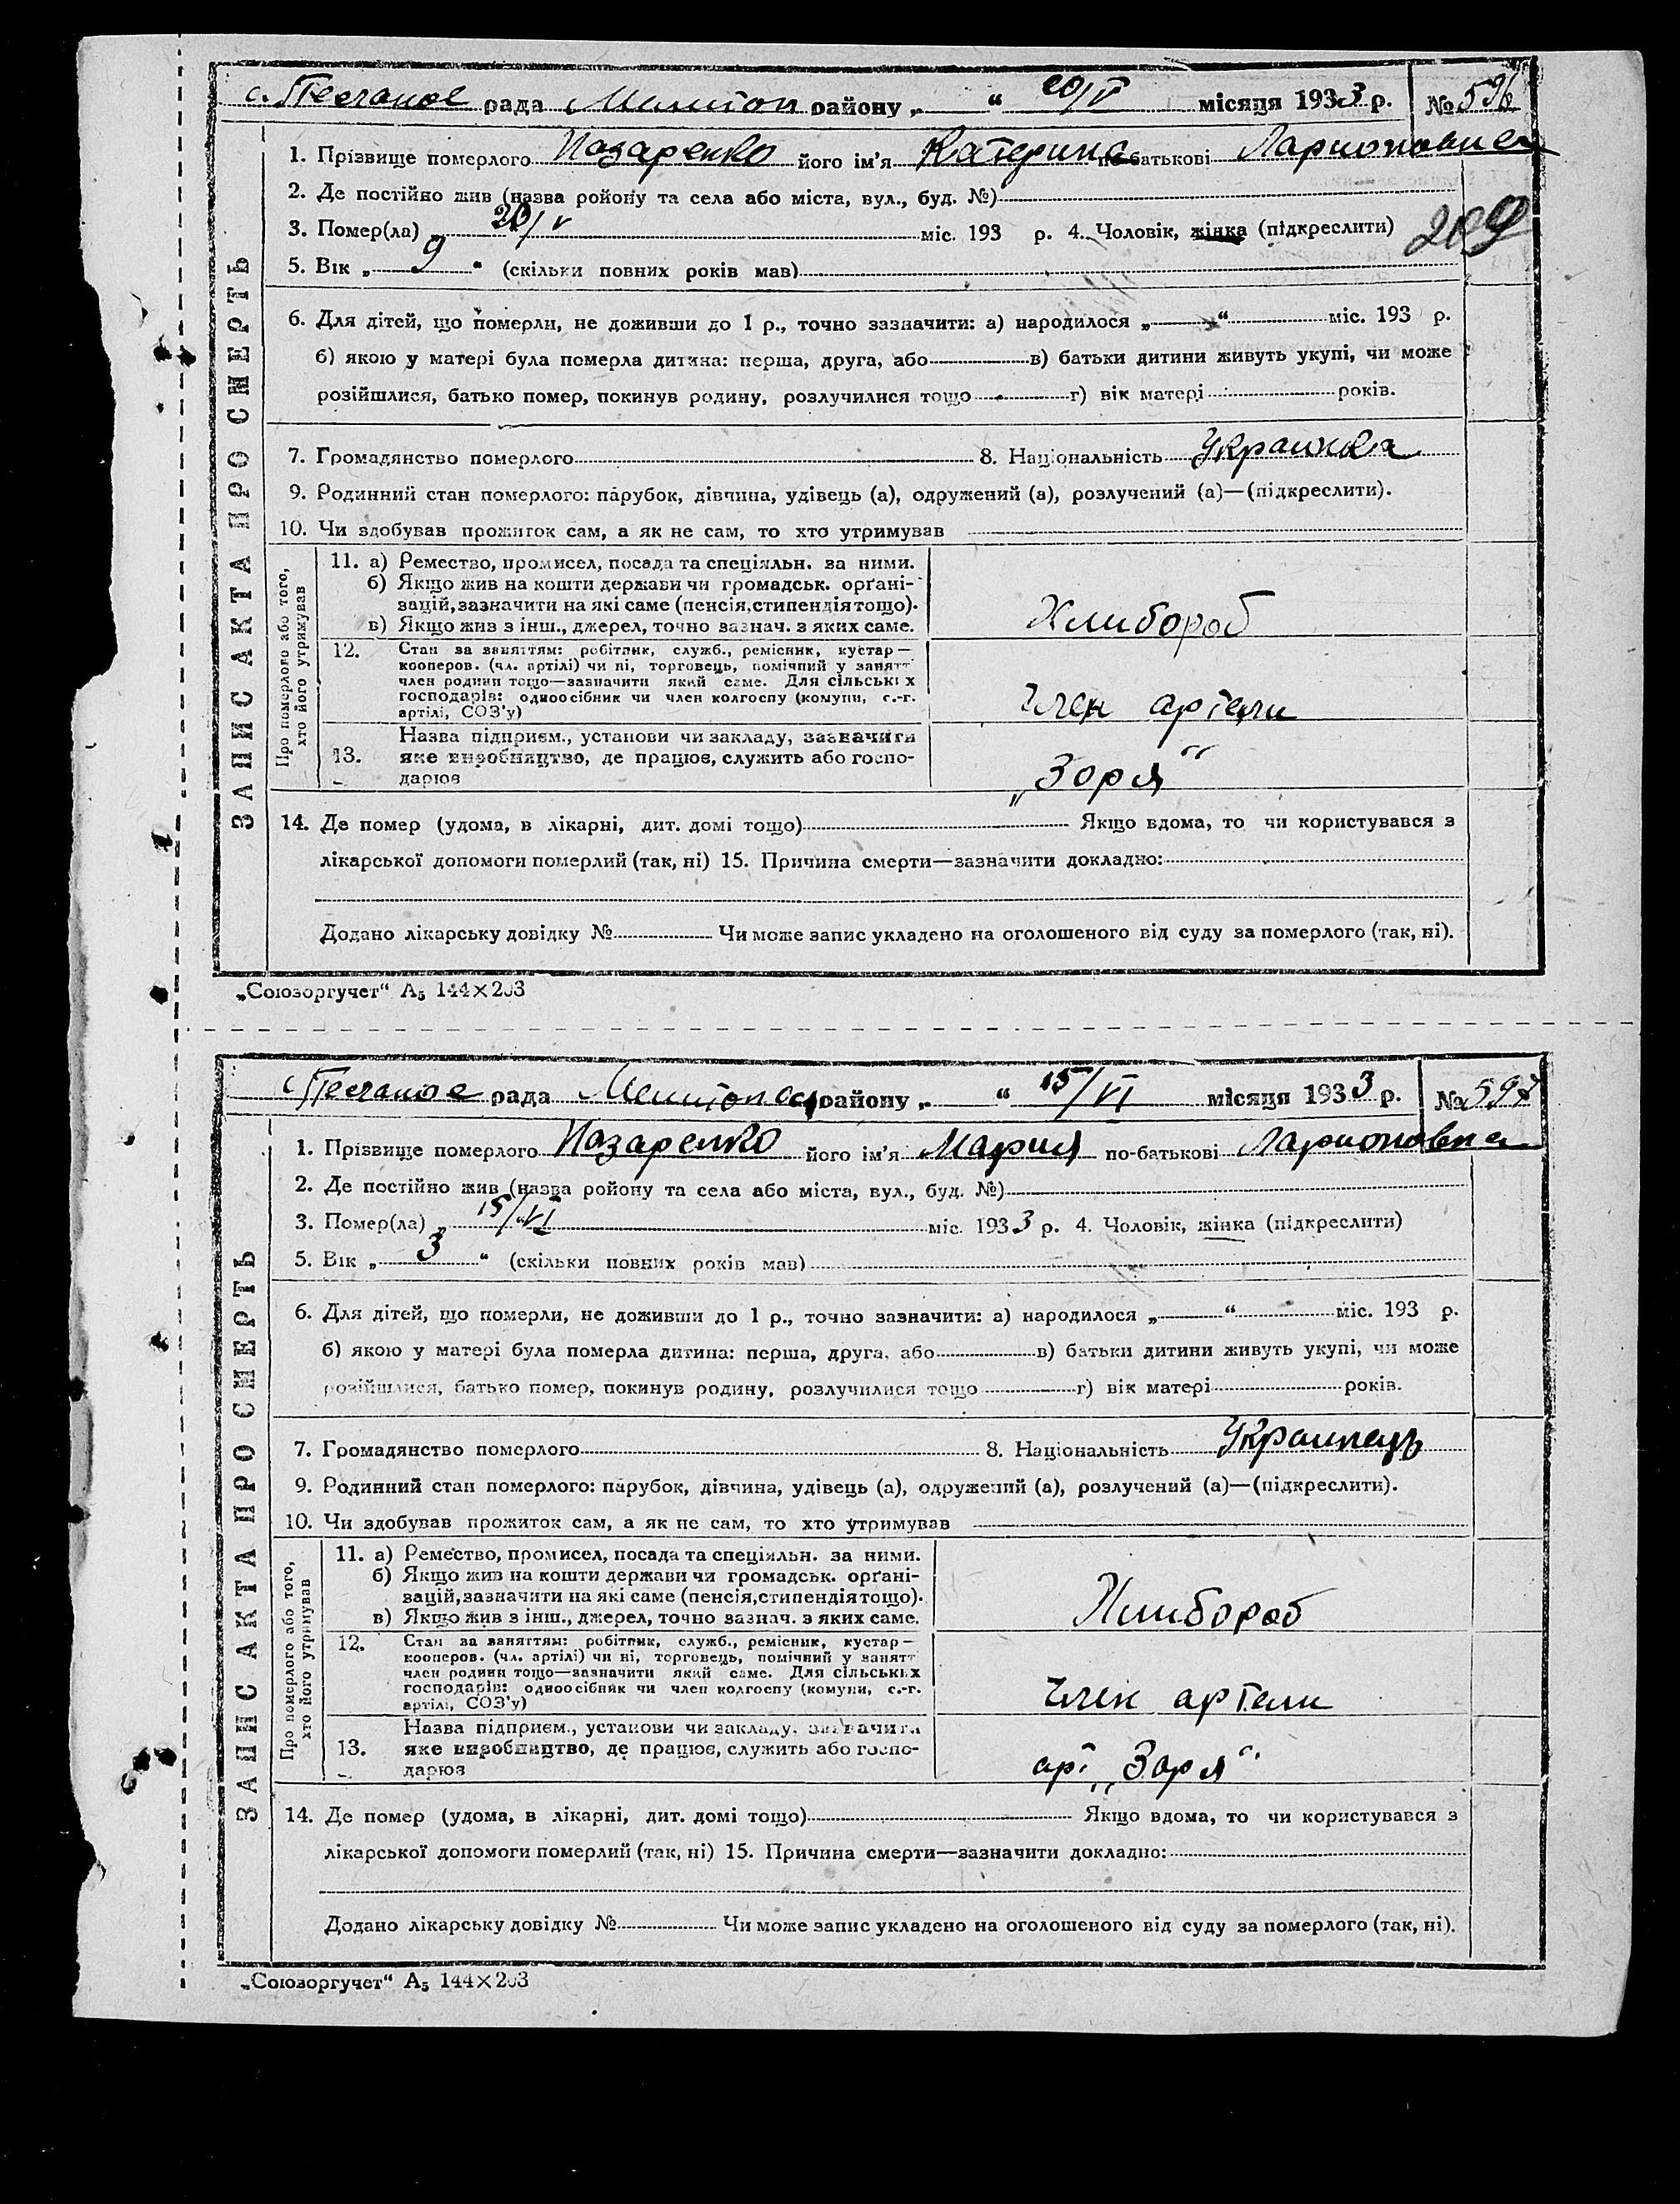 с. Песчаное рада Мелитоп району „ “ 20/V місяця 1933 р. № 596
1. Прізвище померлого Назаренко його ім’я Катерина по-батькові Ларионовна
2. Де постійно жив (назва ройону та села або міста, вул., буд. №)
209
3. Помер(ла) „ 20/V міс. 193 р. 4. Чоловік, жінка (підкреслити)
5. Вік „ 9 “ (скільки повних років мав)
6. Для дітей, що померли, не доживши до 1 р., точно зазначити: а) народилося „ “ міс. 193 р.
б) якою у матері була померла дитина: перша, друга, або в) батьки дитини живуть укупі, чи може
розійшлися, батько помер, покинув родину, розлучилися тощо г) вік матері років.
7. Громадянство померлого 8. Національність Украинка
9. Родинний стан померлого: парубок, дівчина, удівець (а), одружений (а), розлучений (а)—(підкреслити).
10. Чи здобував прожиток сам, а як не сам, то хто утримував
ЗАПИС АКТА ПРО СМЕРТЬ
Про померлого або того,
хто його утримував
11. а) Ремество, промисел, посада та спеціяльн. за ними.
б) Якщо жив на кошти держави чи громадськ. орґані-
зацій, зазначити на які саме (пенсія, стипендія тощо).
в) Якщо жив з інш., джерел, точно зазнач. з яких саме.
Хлибороб
12. Стан за заняттям: робітник, служб., ремісник, кустар—
кооперов. (чл. артілі) чи ні, торговець, помічний у занятт
член родини тощо—зазначити який саме. Для сільських
господарів: одноосібник чи член колгоспу (комуни, с.-г.
артілі, СОЗ’у)
Член артели
13. Назва підприєм., установи чи закладу, зазначити
яке виробництво, де працює, служить або госпо-
дарює
„Зоря“
14. Де помер (удома, в лікарні, дит. домі тощо) Якщо вдома, то чи користувався з
лікарської допомоги померлий (так, ні) 15. Причина смерти—зазначити докладно:
Додано лікарську довідку № Чи може запис укладено на оголошеного від суду за померлого (так, ні).
„Союзоргучет“ А5 144×203
с Песчаное рада Мелитопос району „ “ 15/VI місяця 1933 р. № 597
1. Прізвище померлого Назаренко його ім’я Мария по-батькові Ларионовна
2. Де постійно жив (назва ройону та села або міста, вул., буд. №)
3. Помер(ла) „ 15/VI міс. 1933 р. 4. Чоловік, жінка (підкреслити)
5. Вік „ 3 “ (скільки повних років мав)
6. Для дітей, що померли, не доживши до 1 р., точно зазначити: а) народилося „ “ міс. 193 р.
б) якою у матері була померла дитина: перша, друга, або в) батьки дитини живуть укупі, чи може
розійшлися, батько помер, покинув родину, розлучилися тощо г) вік матері років.
7. Громадянство померлого 8. Національність Украинець
9. Родинний стан померлого: парубок, дівчина, удівець (а), одружений (а), розлучений (а)—(підкреслити).
10. Чи здобував прожиток сам, а як не сам, то хто утримував
ЗАПИС АКТА ПРО СМЕРТЬ
Про померлого або того,
хто його утримував
11. а) Ремество, промисел, посада та спеціяльн. за ними.
б) Якщо жив на кошти держави чи громадськ. орґані-
зацій, зазначити на які саме (пенсія, стипендія тощо).
в) Якщо жив з інш., джерел, точно зазнач. з яких саме.
Хлибороб
12. Стан за заняттям: робітник, служб., ремісник, кустар—
кооперов. (чл. артілі) чи ні, торговець, помічний у занятт
член родини тощо—зазначити який саме. Для сільських
господарів: одноосібник чи член колгоспу (комуни, с.-г.
артілі, СОЗ’у)
Член артели
13. Назва підприєм., установи чи закладу, зазначити
яке виробництво, де працює, служить або госпо-
дарює
арт. „Заря“
14. Де помер (удома, в лікарні, дит. домі тощо) Якщо вдома, то чи користувався з
лікарської допомоги померлий (так, ні) 15. Причина смерти—зазначити докладно:
Додано лікарську довідку № Чи може запис укладено на оголошеного від суду за померлого (так, ні).
„Союзоргучет“ А5 144×203